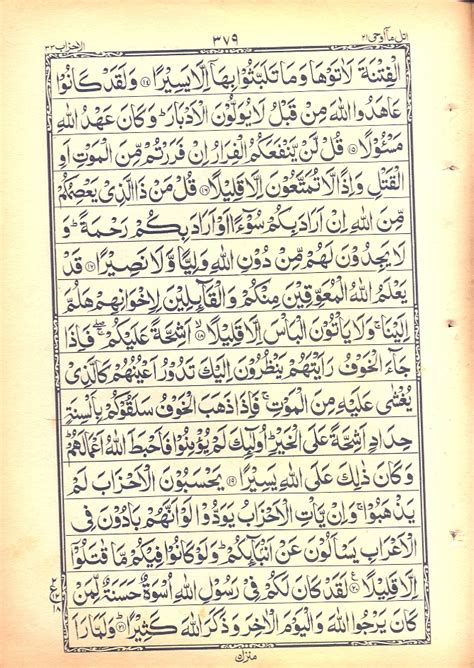 اتل ماۤ اوحی ۲۱ ۳۷۹ الاحزاب ۳۳
الْفِتْنَةَ لَاٰتَوْهَا وَمَا تَلَبَّثُوْا بِهَاۤ اِلَّا يَسِيْرًا ۝۱۴ وَلَقَدْ كَانُوْا
عَاهَدُوا اللّٰهَ مِنْ قَبْلُ لَا يُوَلُّوْنَ الْاَدْبَارَ ؕ وَكَانَ عَهْدُ اللّٰهِ
مَسْـُٔوْلًا ۝۱۵ قُلْ لَّنْ يَّنْفَعَكُمُ الْفِرَارُ اِنْ فَرَرْتُمْ مِّنَ الْمَوْتِ اَوِ
الْقَتْلِ وَاِذًا لَّا تُمَتَّعُوْنَ اِلَّا قَلِيْلًا ۝۱۶ قُلْ مَنْ ذَا الَّذِيْ يَعْصِمُكُمْ
مِّنَ اللّٰهِ اِنْ اَرَادَ بِكُمْ سُوْٓءًا اَوْ اَرَادَ بِكُمْ رَحْمَةً ؕ وَ
لَا يَجِدُوْنَ لَهُمْ مِّنْ دُوْنِ اللّٰهِ وَلِيًّا وَّلَا نَصِيْرًا ۝۱۷ قَدْ
يَعْلَمُ اللّٰهُ الْمُعَوِّقِيْنَ مِنْكُمْ وَالْقَآئِلِيْنَ لِاِخْوَانِهِمْ هَلُمَّ
اِلَيْنَا ۚ وَلَا يَاْتُوْنَ الْبَاْسَ اِلَّا قَلِيْلًا ۝۱۸ اَشِحَّةً عَلَيْكُمْ ۚ فَاِذَا
جَآءَ الْخَوْفُ رَاَيْتَهُمْ يَنْظُرُوْنَ اِلَيْكَ تَدُوْرُ اَعْيُنُهُمْ كَالَّذِيْ
يُغْشٰى عَلَيْهِ مِنَ الْمَوْتِ ۚ فَاِذَا ذَهَبَ الْخَوْفُ سَلَقُوْكُمْ بِاَلْسِنَةٍ
حِدَادٍ اَشِحَّةً عَلَى الْخَيْرِ ؕ اُولٰٓئِكَ لَمْ يُؤْمِنُوْا فَاَحْبَطَ اللّٰهُ اَعْمَالَهُمْ ؕ
وَكَانَ ذٰلِكَ عَلَى اللّٰهِ يَسِيْرًا ۝۱۹ يَحْسَبُوْنَ الْاَحْزَابَ لَمْ
يَذْهَبُوْا ۚ وَاِنْ يَّاْتِ الْاَحْزَابُ يَوَدُّوْا لَوْ اَنَّهُمْ بَادُوْنَ فِى
الْاَعْرَابِ يَسْاَلُوْنَ عَنْ اَنْۢبَآئِكُمْ ؕ وَلَوْ كَانُوْا فِيْكُمْ مَّا قٰتَلُوْۤا
اِلَّا قَلِيْلًا ۝۲۰ لَقَدْ كَانَ لَكُمْ فِيْ رَسُوْلِ اللّٰهِ اُسْوَةٌ حَسَنَةٌ لِّمَنْ
كَانَ يَرْجُوا اللّٰهَ وَالْيَوْمَ الْاٰخِرَ وَذَكَرَ اللّٰهَ كَثِيْرًا ۝۲۱ وَلَمَّا رَاَ